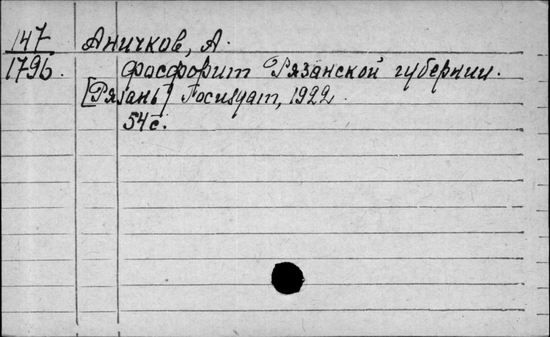 147 Аничков, А.
1796. Фосфорит Рязанской губернии.
[Рязань] Госиздат, 1922.
54 с.